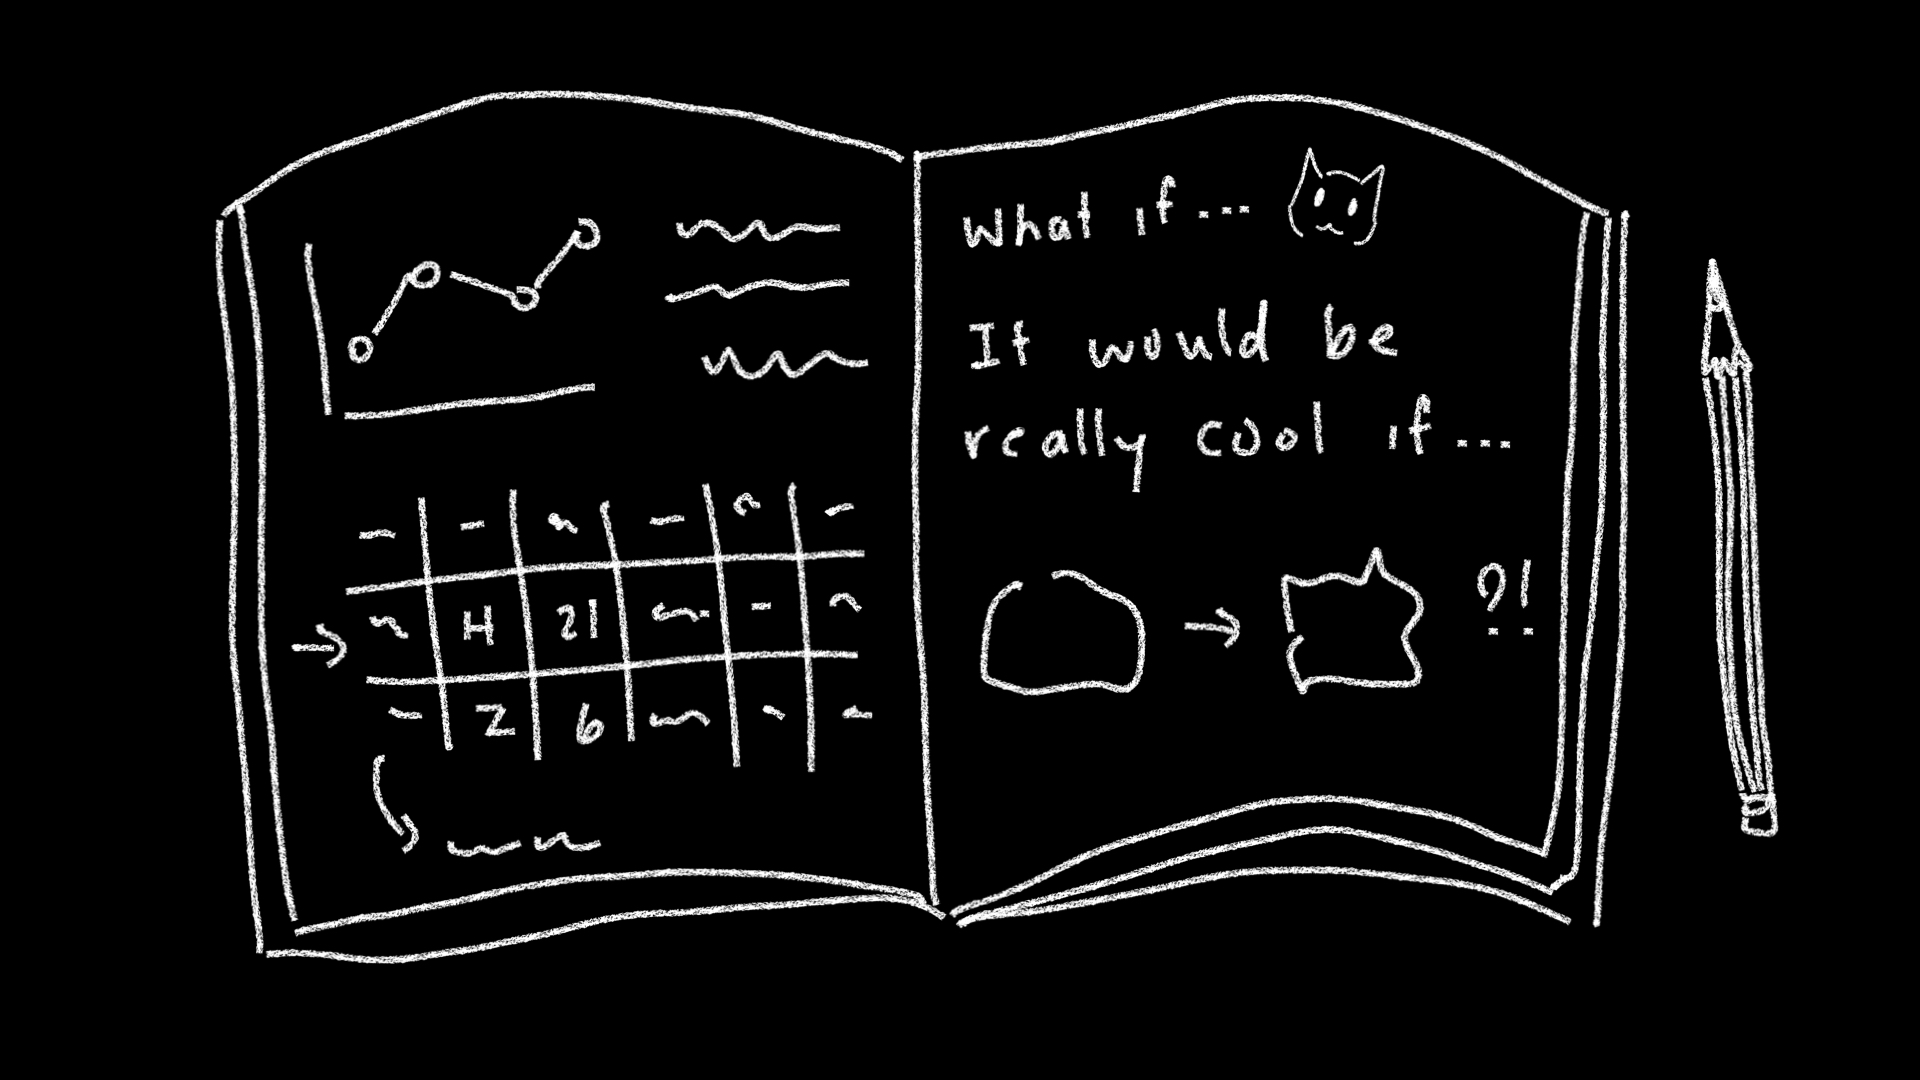 What if...
It would be
really cool if...
H 21
2 6
?!